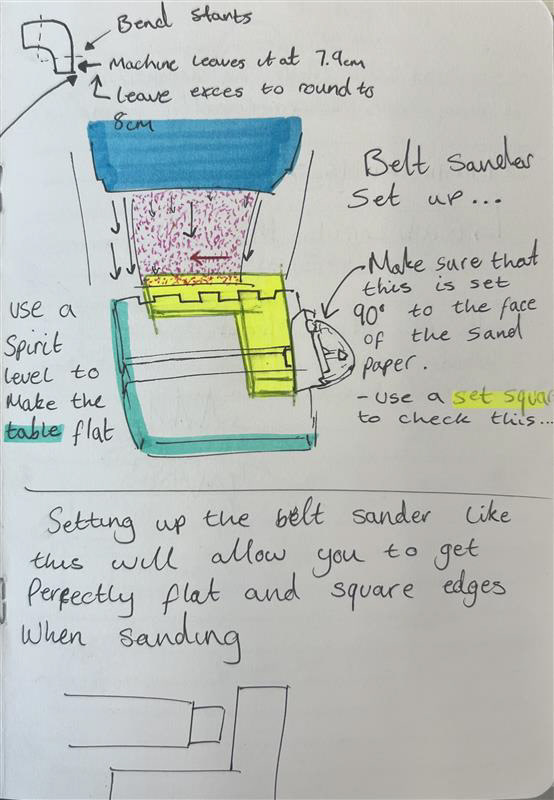 Bend starts
Machine leaves it at 7.9cm
leave exces to round to
8cm
Belt sander
Set up...
Make sure that
this is set
90° to the face
of the sand
paper.
- Use a set squar
to check this...
use a
Spirit
level to
Make the
table flat
Setting up the belt sander like
this will allow you to get
Perfectly flat and square edges
When sanding